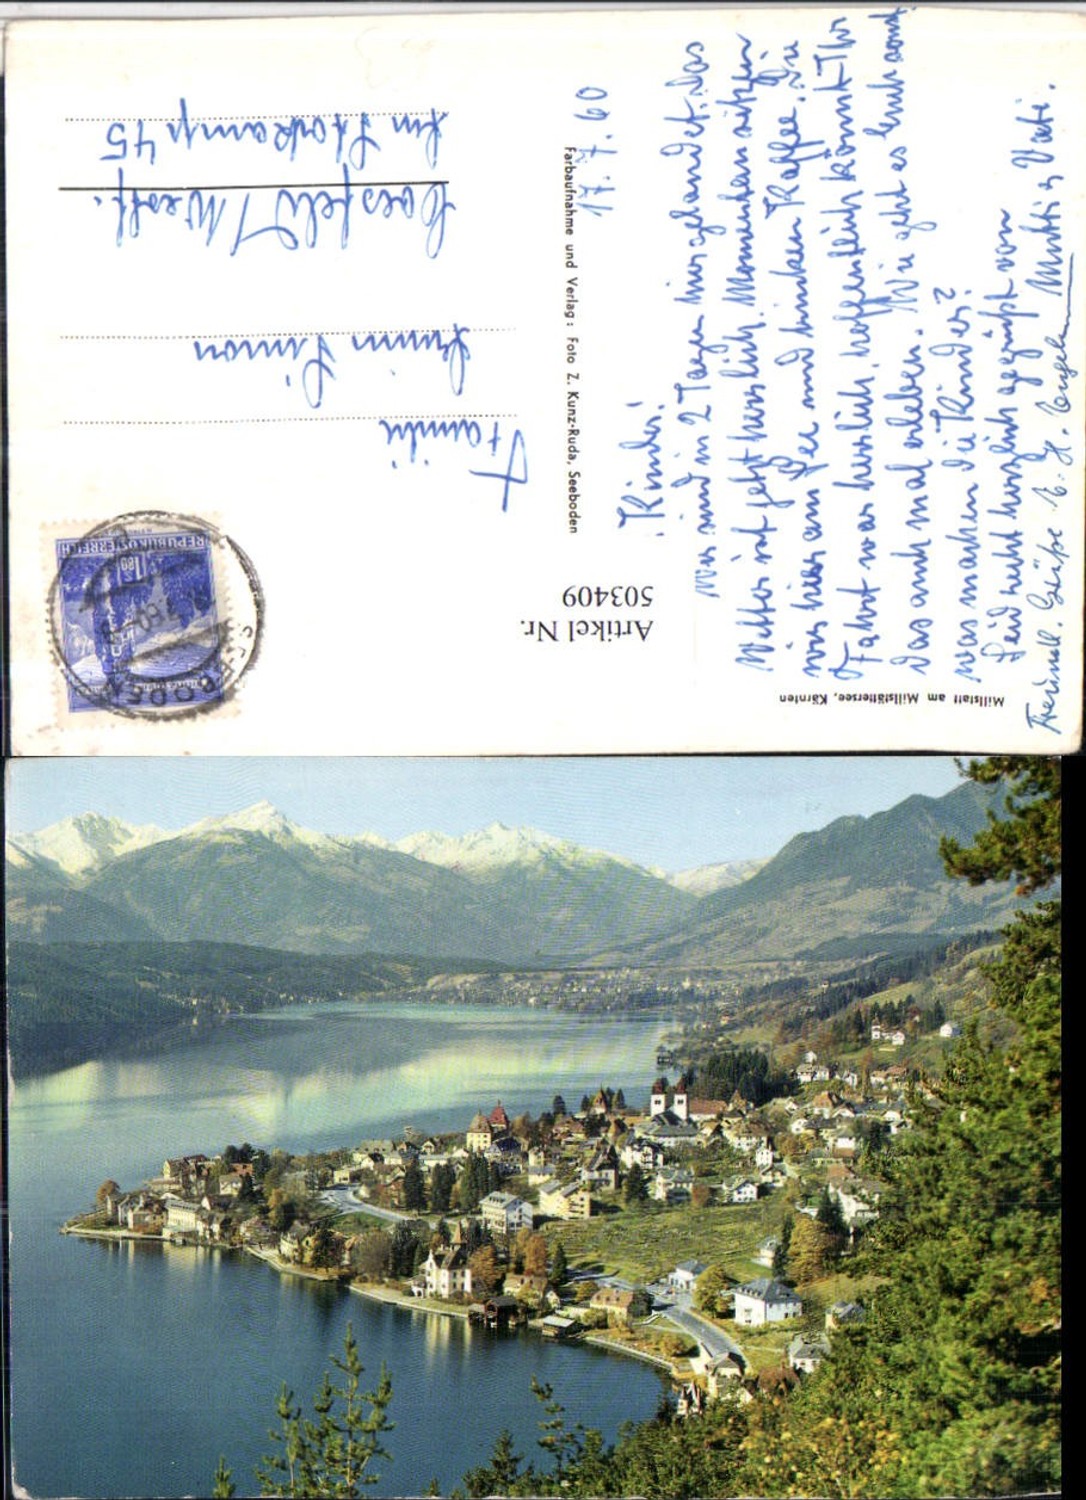 Millstatt am Millstättersee, Kärnten
Artikel Nr.
503409
Farbaufnahme und Verlag: Foto Z. Kunz-Ruda, Seeboden
REPUBLIK ÖSTERREICH
SEEBODEN
17.7.60
Kinder!
Wir sind in 2 Tagen hier gelandet. Das
Wetter ist jetzt herrlich. Momentan sitzen
wir hier am See und trinken Kaffee. Die
Fahrt war herrlich, hoffentlich könnt Ihr
das auch mal erleben. Wie geht es Euch sonst
was machen die Kinder?
Seid recht herzlich gegrüßt von
Mutti u. Vati.
Freundl. Grüße
Familie
Simon
Coesfeld / Westf.
45